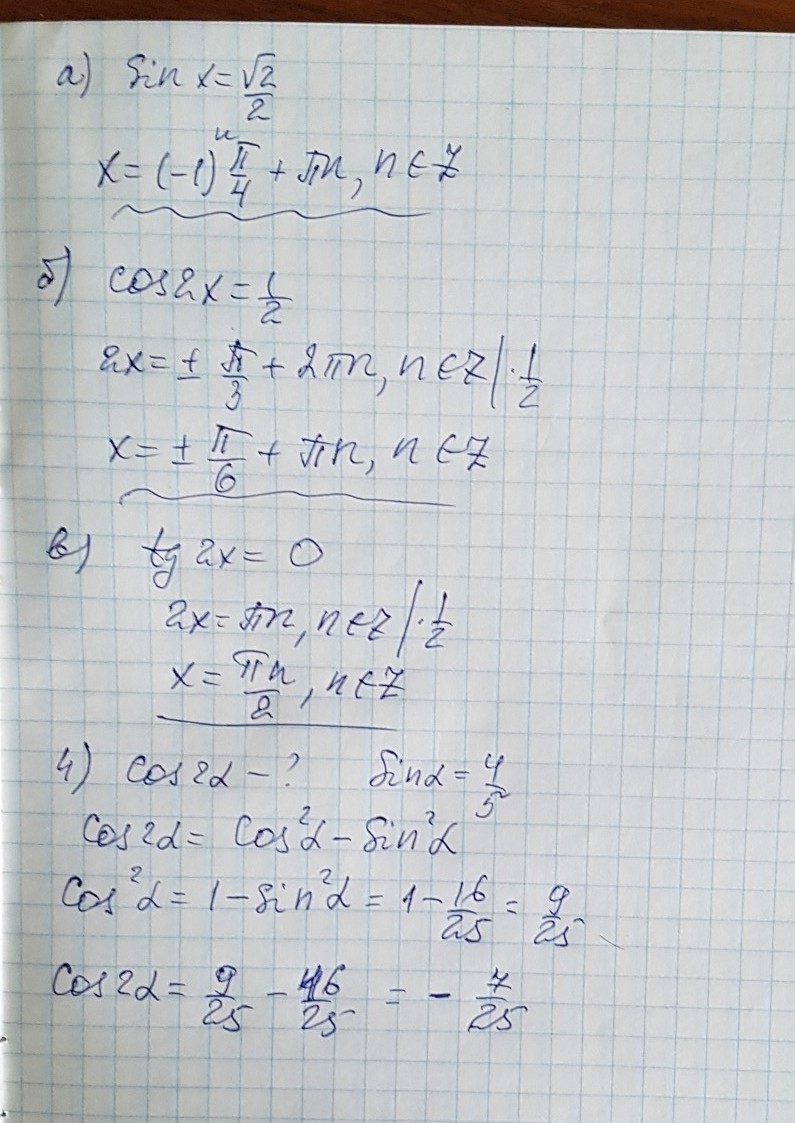 а) Sin x = √2/2
x = (-1)ⁿ π/4 + πn, n ∈ Z
б) cos 2x = 1/2
2x = ± π/3 + 2πn, n ∈ Z | · 1/2
x = ± π/6 + πn, n ∈ Z
в) tg 2x = 0
2x = πn, n ∈ Z | · 1/2
x = πn/2, n ∈ Z
4) Cos 2α - ? Sin α = 4/5
Cos 2α = Cos²α - Sin²α
Cos²α = 1 - Sin²α = 1 - 16/25 = 9/25
Cos 2α = 9/25 - 16/25 = - 7/25